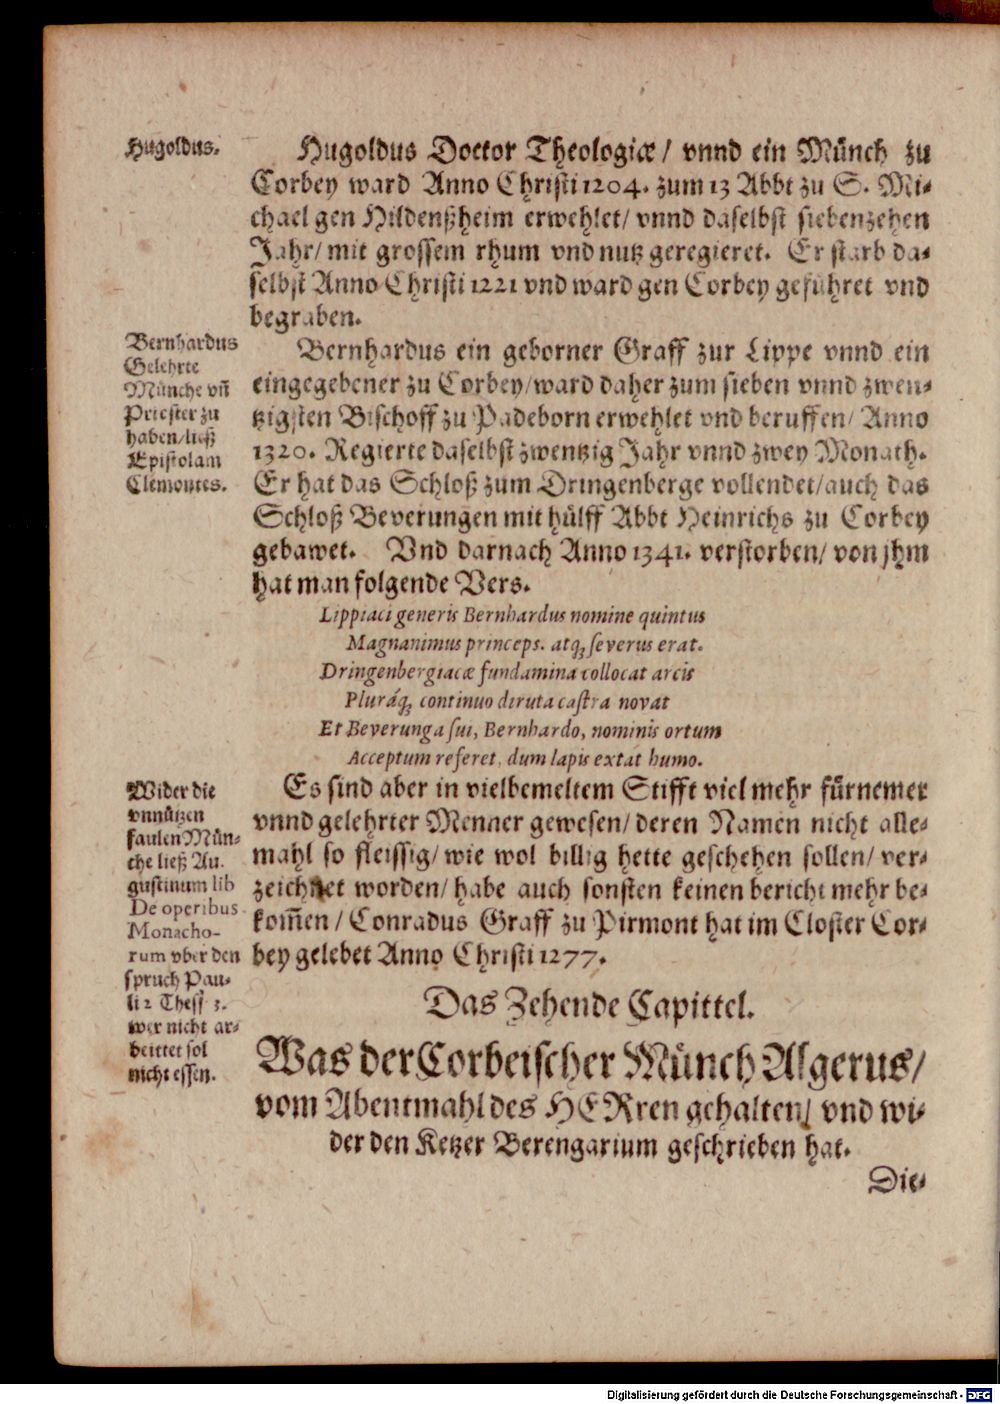 Hugoldus.
Hugoldus Doctor Theologiæ / vnnd ein Münch zu
Corbey ward Anno Christi 1204. zum 13 Abbt zu S. Mi-
chael gen Hildenßheim erwehlet/ vnnd daselbst siebenzehen
Jahr/ mit grossem rhum vnd nutz geregieret. Er starb da-
selbst Anno Christi 1221 vnd ward gen Corbey geführet vnd
begraben.
Bernhardus
Gelehrte
Münche vñ
Priester zu
haben/ließ
Epistolam
Clementes.
Bernhardus ein geborner Graff zur Lippe vnnd ein
eingegebener zu Corbey/ward daher zum sieben vnnd zwen-
tzigsten Bischoff zu Padeborn erwehlet vnd beruffen/ Anno
1320. Regierte daselbst zwentzig Jahr vnnd zwey Monath.
Er hat das Schloß zum Dringenberge vollendet/auch das
Schloß Beverungen mit hülff Abbt Heinrichs zu Corbey
gebawet. Vnd darnach Anno 1341. verstorben/ von jhm
hat man folgende Vers.
Lippiaci generis Bernhardus nomine quintus
Magnanimus princeps. atq; severus erat.
Dringenbergiacæ fundamina collocat arcis
Pluráq; continuo diruta castra novat
Et Beverunga sui, Bernhardo, nominis ortum
Acceptum referet, dum lapis extat humo.
Wider die
vnnützen
faulen Mün-
che ließ Au.
gustinum lib
De operibus
Monacho-
rum vber den
spruch Pau-
li 2 Thess 3.
wer nicht ar-
beittet sol
nicht essen.
Es sind aber in vielbemeltem Stifft viel mehr fürnemer
vnnd gelehrter Menner gewesen/ deren Namen nicht alle-
mahl so fleissig/ wie wol billig hette geschehen sollen/ ver-
zeichnet worden/ habe auch sonsten keinen bericht mehr be-
kom̃en / Conradus Graff zu Pirmont hat im Closter Cor-
bey gelebet Anno Christi 1277.
Das Zehende Capittel.
Was der Corbeischer Münch Algerus/
vom Abentmahl des HERren gehalten/ vnd wi-
der den Ketzer Berengarium geschrieben hat.
Die-
Digitalisierung gefördert durch die Deutsche Forschungsgemeinschaft - DFG